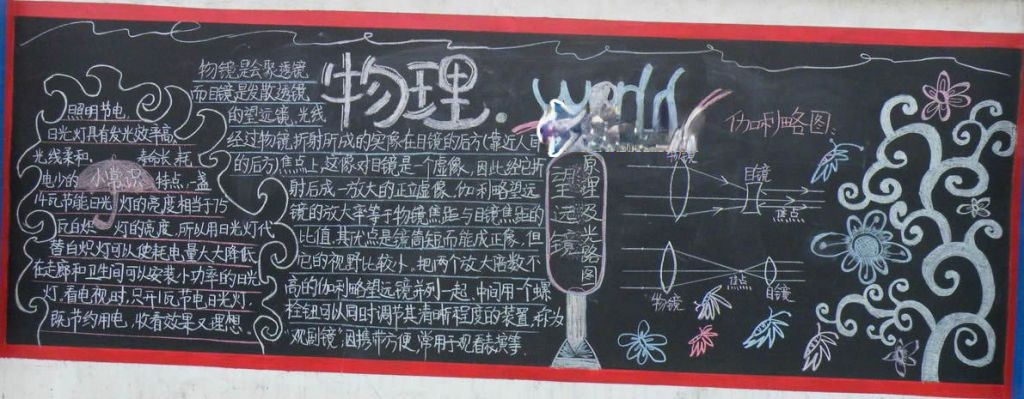 物理
world
照明节电
日光灯具有发光效率高、
光线柔和、寿命长、耗
电少的特点,一盏
小常识
14瓦节能日光灯的亮度相当于75
瓦白炽灯的亮度,所以用日光灯代
替白炽灯可以使耗电量大大降低
在走廊和卫生间可以安装小功率的日光
灯.看电视时,只开1瓦节电日光灯,
既节约用电,收看效果又理想.
物镜是会聚透镜
而目镜是发散透镜
的望远镜.光线
经过物镜折射所成的实像在目镜的后方(靠近人目
的后方)焦点上,这像对目镜是一个虚像,因此经它折
射后成一放大的正立虚像.伽利略望远
镜的放大率等于物镜焦距与目镜焦距的
比值.其优点是镜筒短而能成正像,但
它的视野比较小.把两个放大倍数不
高的伽利略望远镜并列一起、中间用一个螺
栓钮可以同时调节其清晰程度的装置,称为
"观剧镜";因携带方便,常用于观看表演等.
望远镜
原理及光路图
伽利略图:
物镜
目镜
焦点
物镜
焦点
目镜